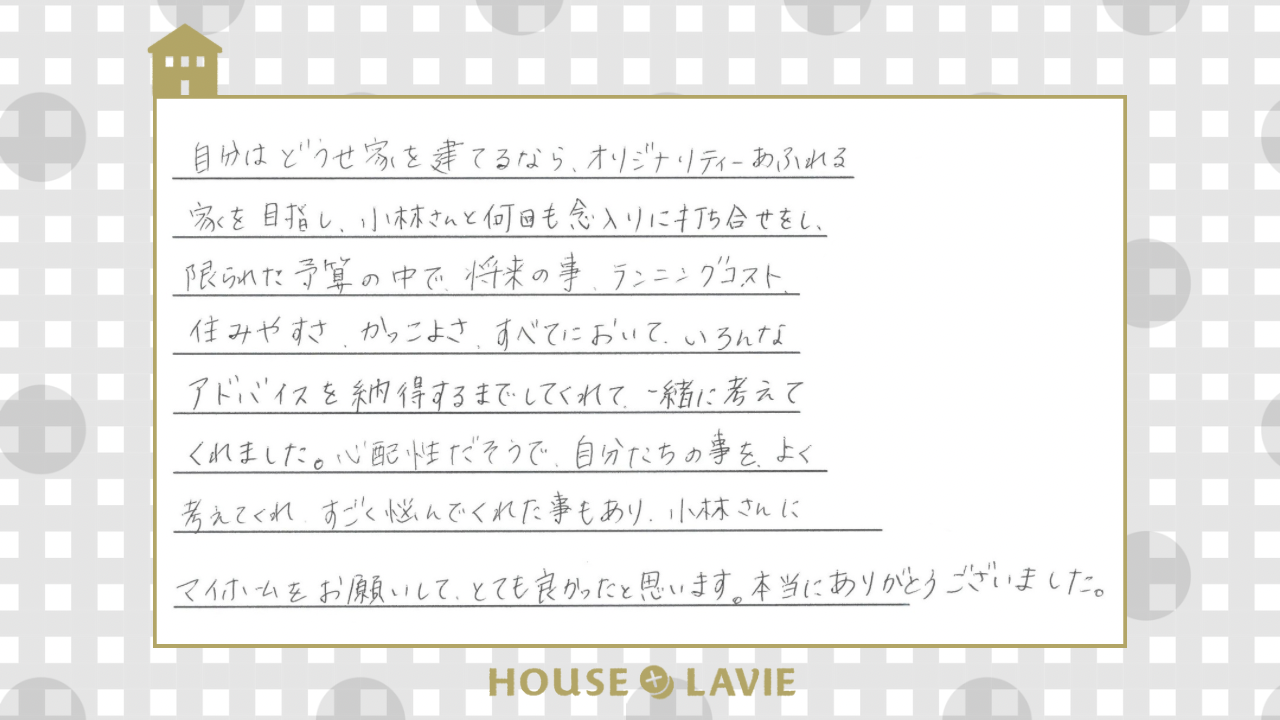 自分はどうせ家を建てるなら、オリジナリティーあふれる
家を目指し、小林さんと何回も念入りに打ち合せをし、
限られた予算の中で、将来の事、ランニングコスト、
住みやすさ、かっこよさ、すべてにおいて、いろんな
アドバイスを納得するまでしてくれて、一緒に考えて
くれました。心配性だそうで、自分たちの事を、よく
考えてくれ、すごく悩んでくれた事もあり、小林さんに
マイホームをお願いして、とても良かったと思います。本当にありがとうございました。
HOUSE LAVIE